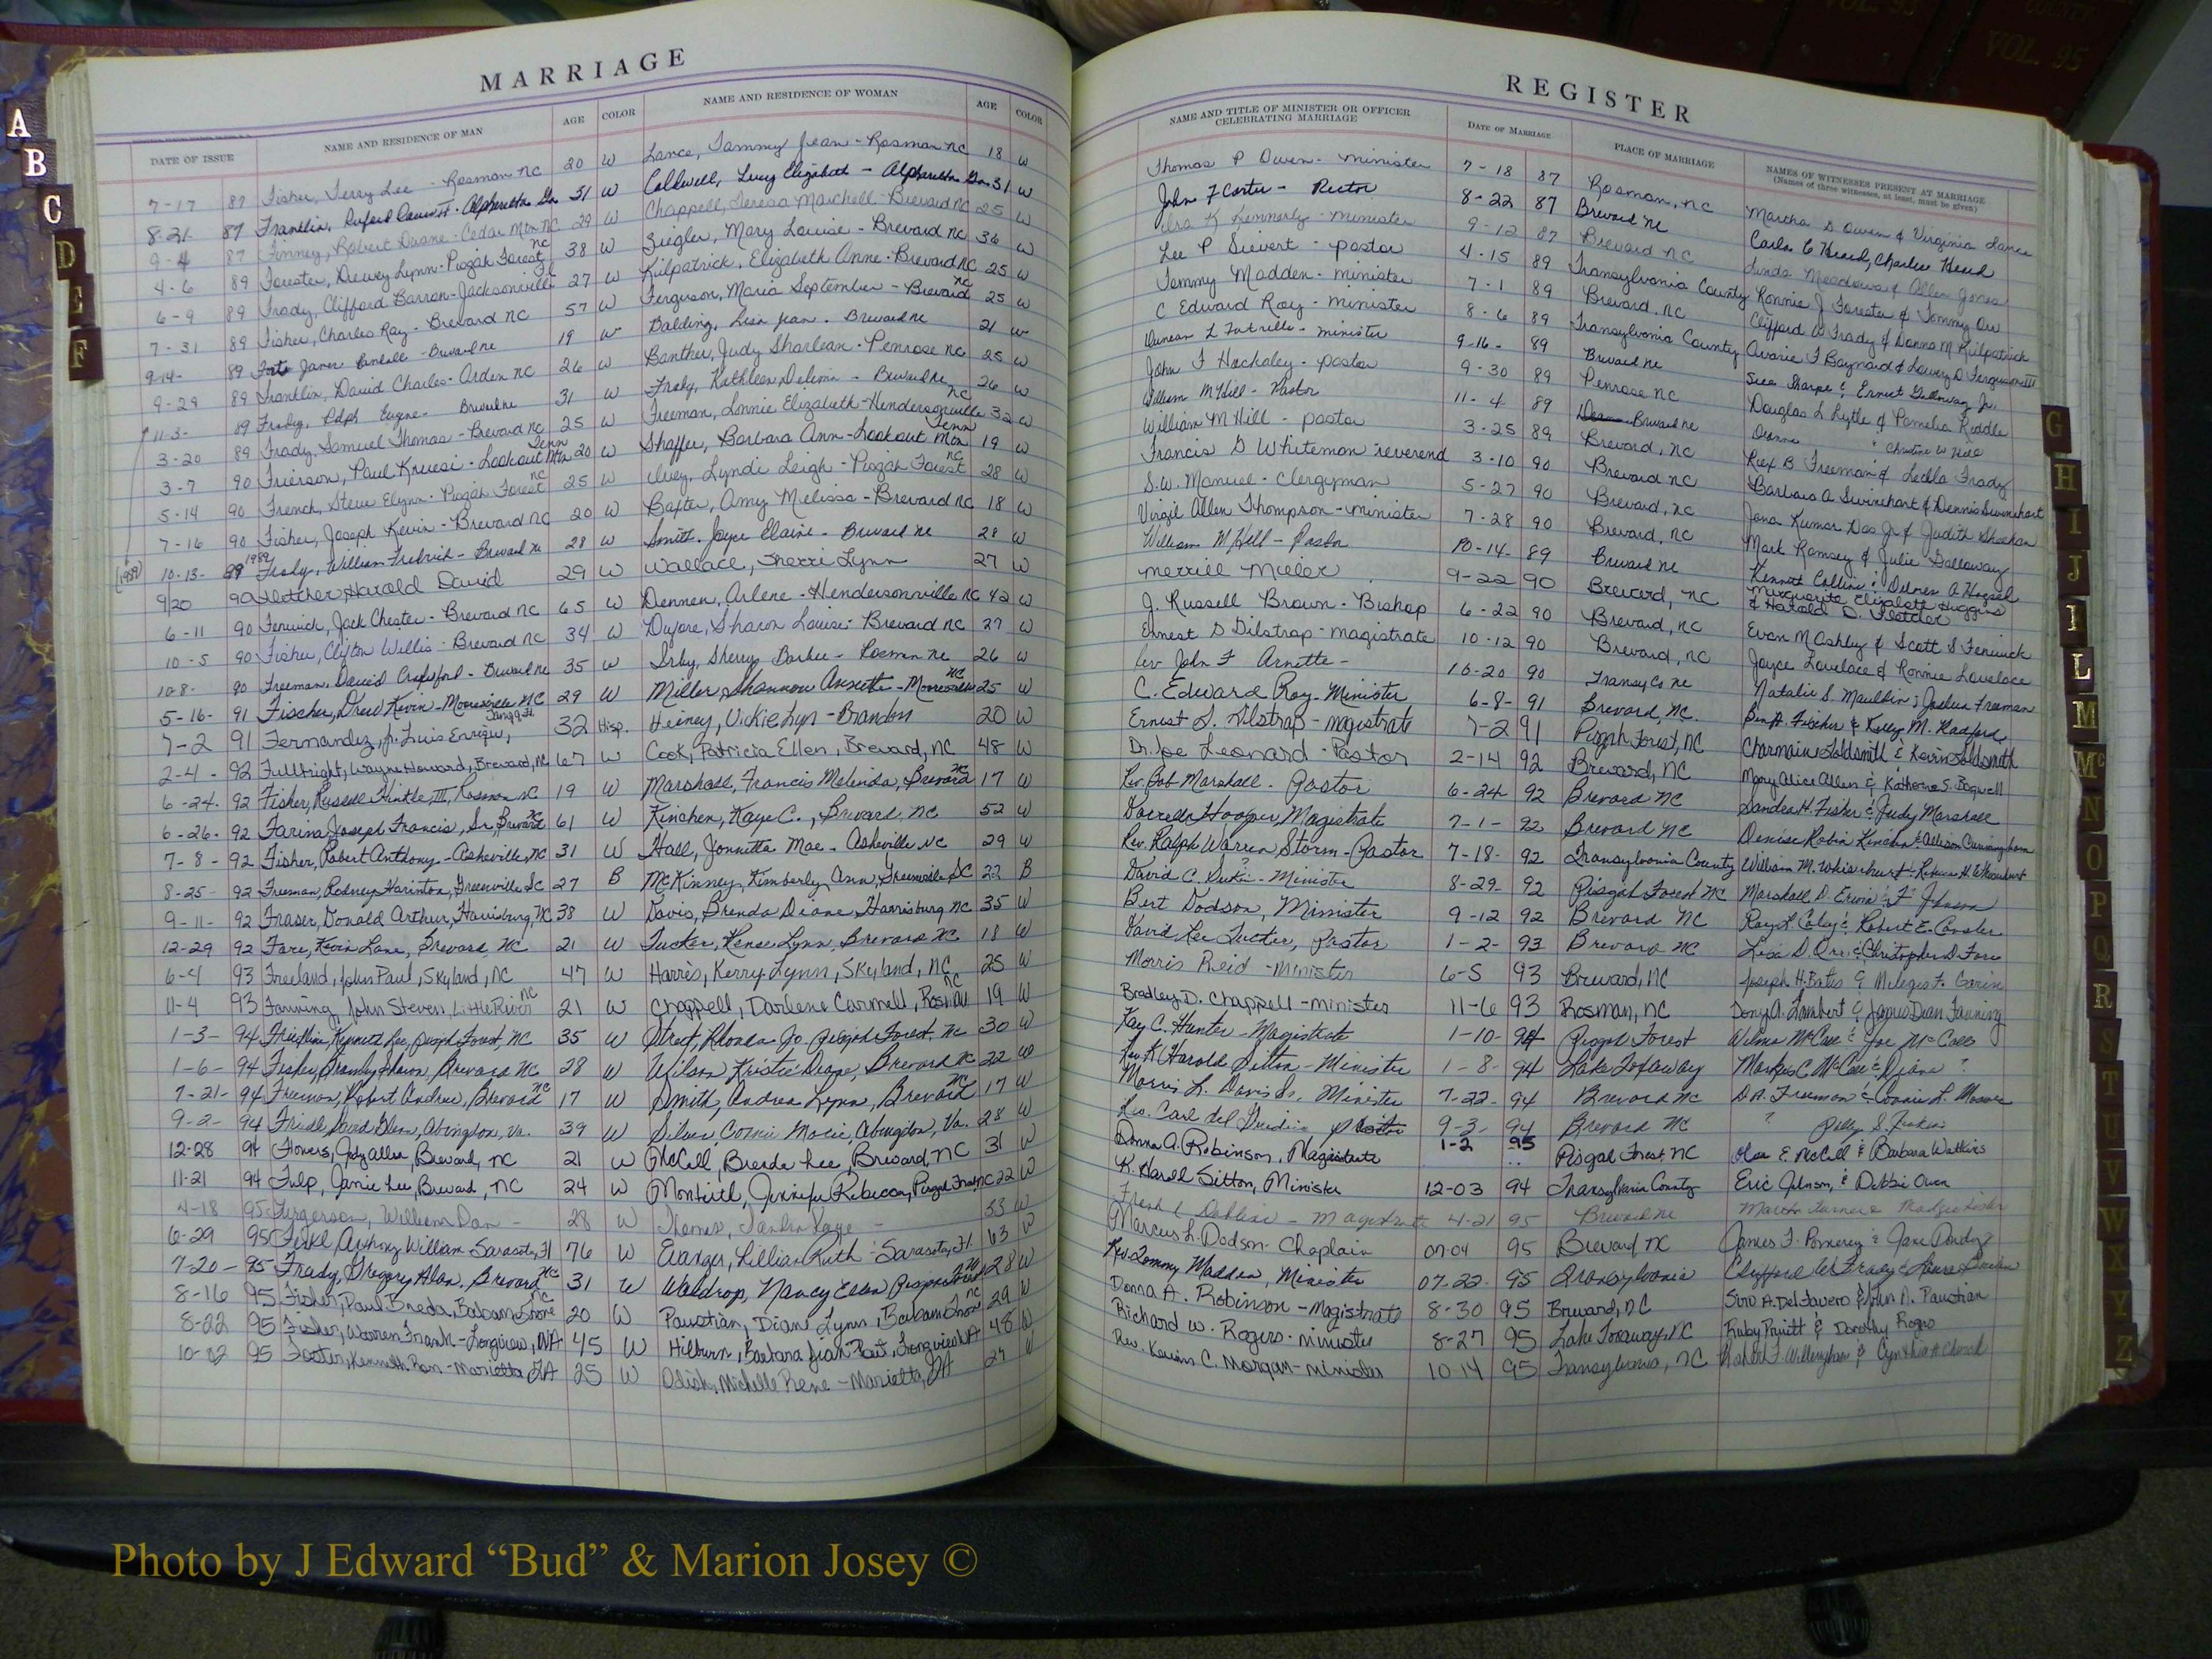 MARRIAGE
DATE OF ISSUE NAME AND RESIDENCE OF MAN AGE COLOR NAME AND RESIDENCE OF WOMAN AGE COLOR
7-17 87 Fisher, Terry Lee - Rosman NC 20 W Lance, Tammy Jean - Rosman NC 18 W
8-21 87 Franklin, Buford 31 W Caldwell, Lucy Elizabeth - Alpharetta Ga 31 W
9-4 87 Finney, Robert Duane - Cedar Mtn NC 29 W Chappell, Teresa Marchell - Brevard NC 25 W
4-6 89 Forester, Dewey Lynn - Pisgah Forest NC 38 W Ziegler, Mary Louise - Brevard NC 36 W
6-9 89 Frady, Clifford Barron - Jacksonville Fl 27 W Kilpatrick, Elizabeth Anne - Brevard NC 25 W
7-31 89 Fisher, Charles Ray - Brevard NC 57 W Ferguson, Maria September - Brevard NC 25 W
9-14- 89 - Brevard NC 19 W Balding, Lisa Jean - Brevard NC 21 W
9-29 89 Franklin, David Charles - Arden NC 26 W Banther, Judy Sharlean - Penrose NC 25 W
11-3- 89 Frady, Ralph Eugene - Brevard NC 31 W Frady, Kathleen - Brevard NC 26 W
3-20 89 Frady, Samuel Thomas - Brevard NC 25 W Freeman, Lonnie Elizabeth - Hendersonville NC 32 W
3-7 90 Frierson, Paul Kruesi - Lookout Mtn Tenn 20 W Shaffer, Barbara Ann - Lookout Mtn Tenn 19 W
5-14 90 French, Steve Elynn - Pisgah Forest NC 25 W Ivey, Lyndi Leigh - Pisgah Forest NC 28 W
7-16 90 Fisher, Joseph Kevin - Brevard NC 20 W Baxter, Amy Melissa - Brevard NC 18 W
(1989) 10-13- 89 1989 Frady, William Fredrick - Brevard NC 28 W Smith, Joyce Elaine - Brevard NC 28 W
9/20 90 Fletcher Harold David 29 W Wallace, Sherri Lynn 27 W
6-11 90 Fenwick, Jack Chester - Brevard NC 65 W Dennen, Arlene - Hendersonville NC 42 W
10-5 90 Fisher, Clifton Willis - Brevard NC 34 W Dufore, Sharon Louise - Brevard NC 27 W
10-8- 90 Freeman, David Crawford - Brevard NC 35 W Irby, Sherry Barbee - Rosman NC 26 W
5-16- 91 Fischer, Drew Kevin - Mooresville NC 29 W Miller, Shannon Annette - Mooresville NC 25 W
7-2 91 Fernandez, Jr. Luis Enrique, Tampa Fl. 32 Hisp. Heiney, Vickie Lyn - Brandon 20 W
2-4- 92 Fullbright, Wayne Howard, Brevard, NC 67 W Cook, Patricia Ellen, Brevard, NC 48 W
6-24- 92 Fisher, Russell Hinkle, III, Rosman NC 19 W Marshall, Francis Melinda, Brevard NC 17 W
6-26- 92 Farina Joseph Francis, Sr. Brevard NC 61 W Kinchen, Kaye C., Brevard, NC 52 W
7-8- 92 Fisher, Robert Anthony - Asheville, NC 31 W Hall, Jonnetta Mae - Asheville NC 29 W
8-25- 92 Freeman, Rodney Harinton, Greenville, SC 27 B McKinney, Kimberly Ann, Greenville SC 22 B
9-11- 92 Fraser, Donald Arthur, Harrisburg, NC 38 W Davis, Brenda Diane, Harrisburg NC 35 W
12-29 92 Fare, Kevin Lane, Brevard, NC 21 W Tucker, Renee Lynn, Brevard NC 18 W
6-4 93 Freeland, John Paul, Skyland, NC 47 W Harris, Kerry Lynn, Skyland, NC 25 W
11-4 93 Fanning, John Steven, Little River NC 21 W Chappell, Darlene Carmell, Rosman NC 19 W
1-3- 94 Kenneth Lee, Pisgah Forest, NC 35 W Street, Rhonda Jo - Pisgah Forest, NC 30 W
1-6- 94 Fisher, Shawn, Brevard NC 28 W Wilson Kristie Diane, Brevard NC 22 W
7-21- 94 Freeman, Robert Andrew, Brevard NC 17 W Smith, Andrea Lynn, Brevard NC 17 W
9-2- 94 Friedl, David Glenn, Abingdon, Va. 39 W Silver, Connie Marie, Abingdon, Va. 28 W
12-28 94 Flowers, Jody Allen, Brevard, NC 21 W McCall, Brenda Lee, Brevard, NC 31 W
11-21 94 Fulp, Jamie Lee, Brevard, NC 24 W Monteith, Jennifer Rebecca, Pisgah Forest, NC 22 W
4-18 95 Fergerson, William Dan - 28 W Thomas, Sandra Kaye - 33 W
6-29 95 Anthony William Sarasota, Fl 76 W Lillian Ruth - Sarasota, Fl 63 W
7-20- 95 Frady, Gregory Alan, Brevard NC 31 W Waldrop, Nancy Ellen Pisgah Forest NC 28 W
8-16 95 Fisher, Paul Balsam Grove NC 20 W Paustian, Diane Lynn, Balsam Grove NC 29 W
8-22 95 Fisher, Warren Frank - Longview, WA 45 W Hilburn, Barbara Jean - Longview WA 48 W
10-02 95 Foster, Kenneth Ron - Marietta GA 25 W Odish, Michelle Rene - Marietta, GA 27 W
REGISTER
NAME AND TITLE OF MINISTER OR OFFICER CELEBRATING MARRIAGE DATE OF MARRIAGE PLACE OF MARRIAGE NAMES OF WITNESSES PRESENT AT MARRIAGE
(Names of three witnesses, at least, must be given)
Thomas P Owen - minister 7-18 87 Rosman, NC Martha S Owen & Virginia Lance
John F Carter - Rector 8-22 87 Brevard NC Carla C Heard, Charlie Heard
Ira K Kennerly - minister 9-12 87 Brevard NC Linda Meadows & Allen Jones
Lee P Sievert - pastor 4-15 89 Transylvania County Ronnie J Forester & Tommy Orr
Tommy Madden - minister 7-1 89 Brevard, NC Clifford W Frady & Donna M Kilpatrick
C Edward Roy - minister 8-6 89 Transylvania County Avarie F Baynard & Lowery D Ferguson III
Duncan L Futrelle - minister 9-16- 89 Brevard NC Tharpe & Ernest Galloway Jr.
John F Hackaley - pastor 9-30 89 Penrose NC Douglas L Lytle & Pamelia Riddle
William M Hill - Pastor 11-4 89 Brevard NC Deanna " Christine W Hill
William M Hill - pastor 3-25 89 Brevard, NC Rex B Freeman & Leolla Frady
Francis G Whiteman reverend 3-10 90 Brevard NC Barbara A Swinehart & Dennis Swinehart
S.W. Manuel - Clergyman 5-27 90 Brevard, NC Jona Kumar Das Jr & Judith Sheehan
Virgil Allen Thompson - minister 7-28 90 Brevard, NC Mark Ramsey & Julie Galloway
William M Hill - Pastor 10-14- 89 Brevard NC Kenneth Collins & Delores A Hoxsel
Merrill Miller 9-22 90 Brevard, NC Marguerite Elizabeth Huggins & Harold D. Fletcher
J. Russell Brown - Bishop 6-22 90 Brevard, NC Evan M Ashley & Scott S Fenwick
Ernest D Gilstrap - magistrate 10-12 90 Brevard, NC Joyce Lovelace & Ronnie Lovelace
Rev John F Arnette - 10-20 90 Transy Co NC Natalie S. Mauldin & Joshua Freeman
C. Edward Roy - Minister 6-8- 91 Brevard, NC. Ben A. Fischer & Kelly M. Radford
Ernest D. Gilstrap - magistrate 7-2 91 Pisgah Forest, NC Charmaine Goldsmith & Kevin Goldsmith
Dr. Joe Leonard - Pastor 2-14 92 Brevard, NC Mary Alice Allen & Katherine S. Bagwell
Rev. Bob Marshall - Pastor 6-24 92 Brevard NC Sandra H. Fisher & Judy Marshall
Darrell Hooper, Magistrate 7-1- 92 Brevard NC Denise Robin Kinchen & Allison Cunningham
Rev. Ralph Warren Storm - Pastor 7-18- 92 Transylvania County William M. Whisenhunt & Rebecca H. Whisenhunt
David C. - Minister 8-29- 92 Pisgah Forest NC Marshall D. Ervin & F. Johnson
Bert Dodson, Minister 9-12 92 Brevard NC Ray L. Coley & Robert E. Cansler
David Lee Tucker, Pastor 1-2- 93 Brevard NC Lisa D. Orr & Christopher D. Fare
Morris Reid - minister 6-5 93 Brevard, NC Joseph H. Bates & F. Garin
Bradley D. Chappell - minister 11-6 93 Rosman, NC Donya Lambert & James Dean Fanning
Kay C. Hunter - Magistrate 1-10- 94 Pisgah Forest Wilma McCall & Joe McCall
Rev. K. Harold Sitton - Minister 1-8- 94 Lake Toxaway C McCall & Diana ?
Morris L. Davis Sr. Minister 7-22- 94 Brevard NC D.R. Freeman & Connie L. Moore
Rev. Carl del 9-3- 94 Brevard NC ? Polly S.
Donna A. Robinson, Magistrate 1-2 95 Pisgah Forest, NC E. McCall & Barbara Watkins
K. Harold Sitton, Minister 12-03 94 Transylvania County Eric Johnson, & Debbie Owen
- Magistrate 4-21 95 Brevard NC Martha Turner &
Marcus L. Dodson - Chaplain 07-04 95 Brevard NC James F. Pomeroy & Jane
Rev. Tommy Madden, Minister 07-22- 95 Transylvania Clifford W Frady &
Donna A. Robinson - Magistrate 8-30 95 Brevard, NC Siro A. Del Favero & John D. Paustian
Richard W. Rogers - minister 8-27 95 Lake Toxaway, NC Ruby Pruitt & Dorothy Rogers
Rev. C. Morgan - minister 10-14 95 Transylvania, NC Robert F. Willingham & Cynthia
A
B
C
D
E
F
G
H
I
J
L
M
Mc
N
O
P
Q
R
S
T
U
V
W
X
Y
Z
VOL. 93
COUNTY
VOL. 95
Photo by J Edward “Bud” & Marion Josey ©